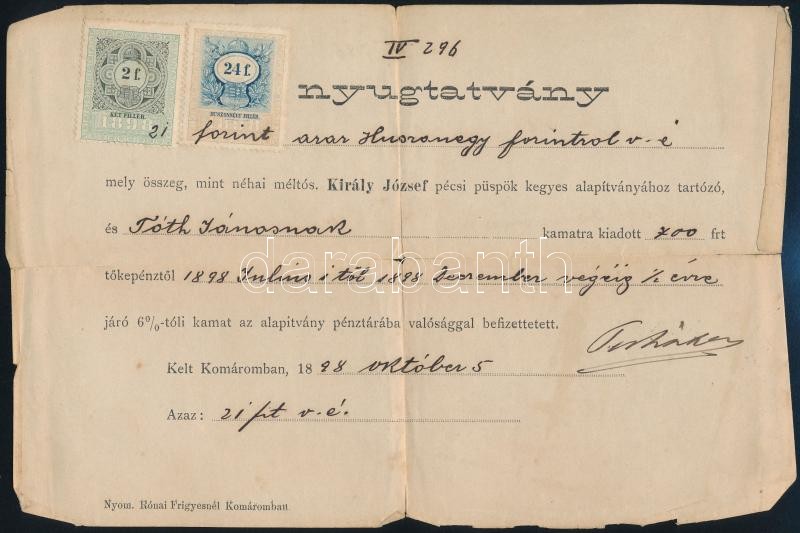 IV 296
2 f.
KÉT FILLÉR.
1898
24 f.
HUSZONNÉGY FILLÉR.
nyugtatvány
21 forint azaz Huszonegy forintrol v-é
mely összeg, mint néhai méltós. Király József pécsi püspök kegyes alapítványához tartózó,
és Tóth Jánosnak kamatra kiadott 700 frt
tőkepénztől 1898 Julius 1 től 1898 December végéig 1/2 évre
járó 6%-tóli kamat az alapitvány pénztárába valósággal befizettetett.
Kelt Komáromban, 1898 október 5
Azaz: 21 frt v-é.
Nyom. Rónai Frigyesnél Komáromban
darabanth